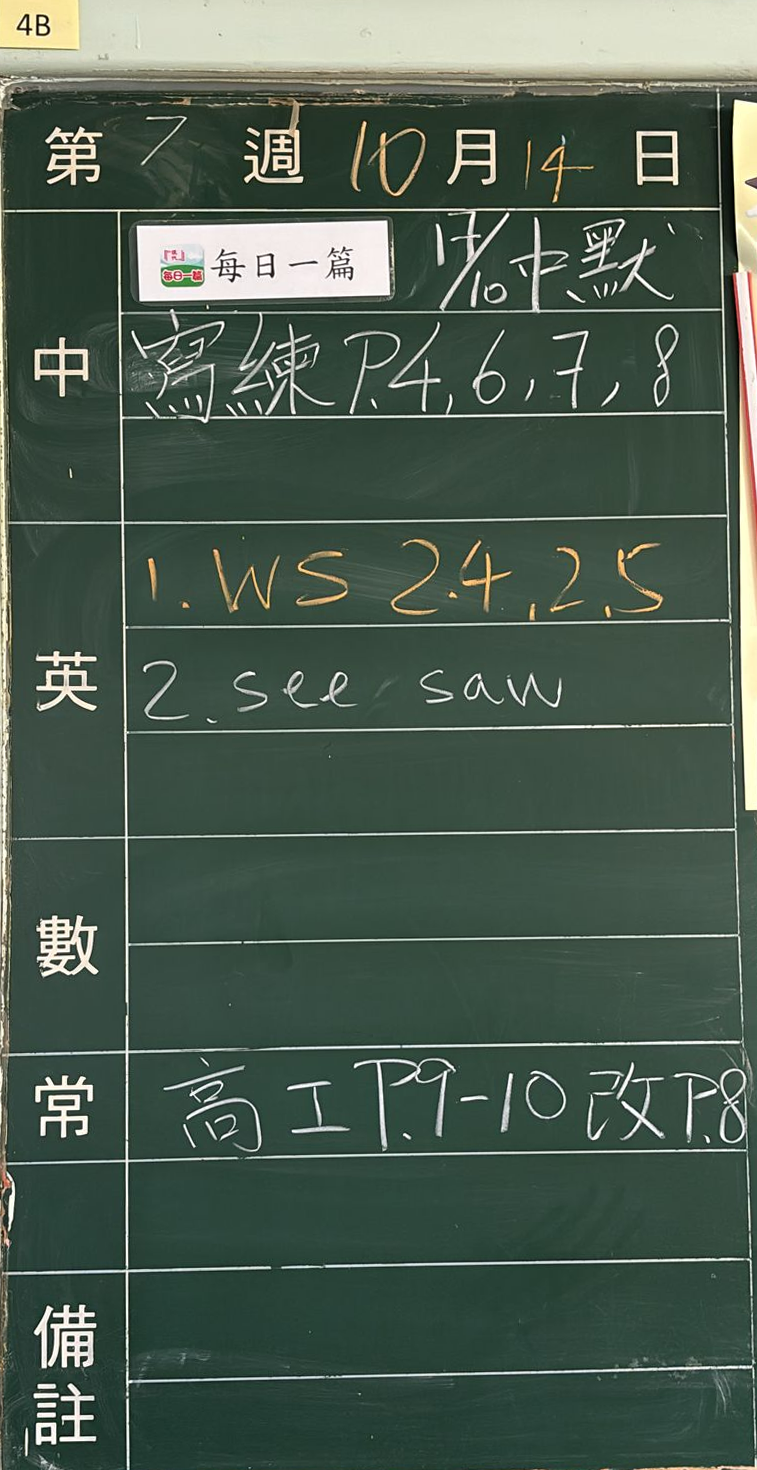 4B
第 7 週 10 月 14 日
中
每日一篇 每日一篇 17/10 中默
寫練 P.4, 6, 7, 8
英
1. WS 2.4, 2.5
2. see saw
數
常
高工 P.9-10 改 P.8
備註